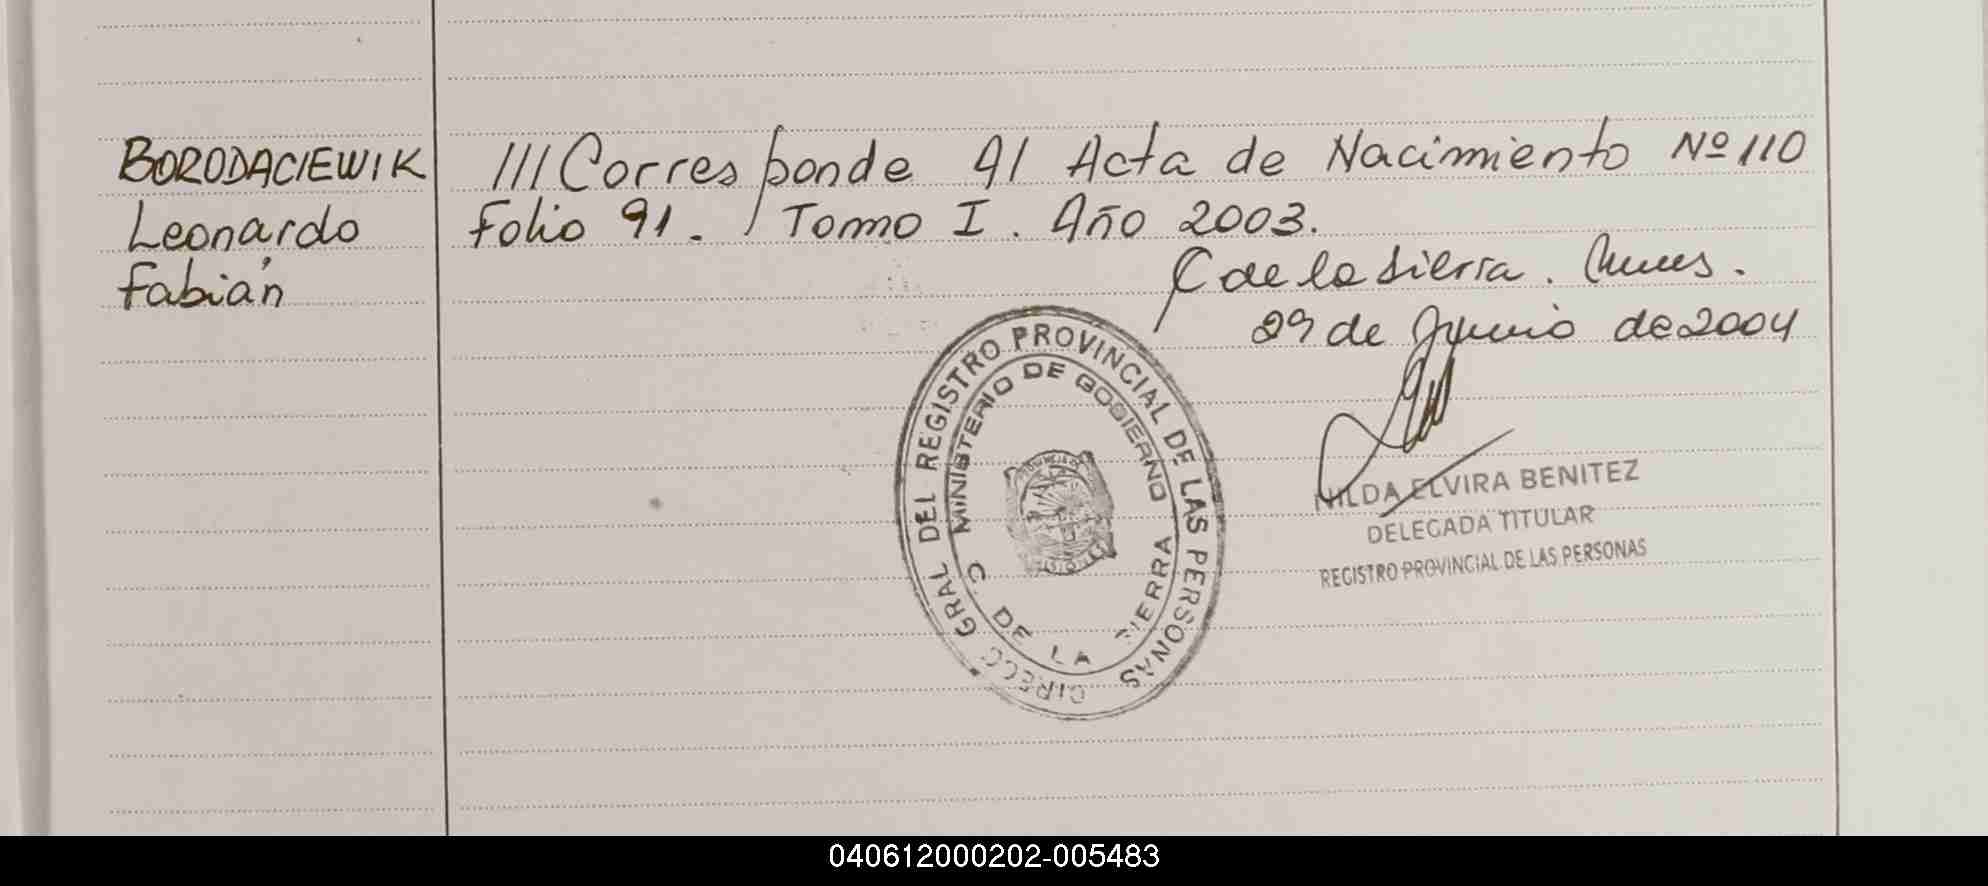 BORODACIEWIK
Leonardo
Fabián
///Corresponde Al Acta de Nacimiento Nº 110
Folio 91. Tomo I. Año 2003.
C de la Sierra. Mnes.
29 de Junio de 2004
DIRECC GRAL DEL REGISTRO PROVINCIAL DE LAS PERSONAS
MINISTERIO DE GOBIERNO
C. DE LA SIERRA
NILDA ELVIRA BENITEZ
DELEGADA TITULAR
REGISTRO PROVINCIAL DE LAS PERSONAS
040612000202-005483